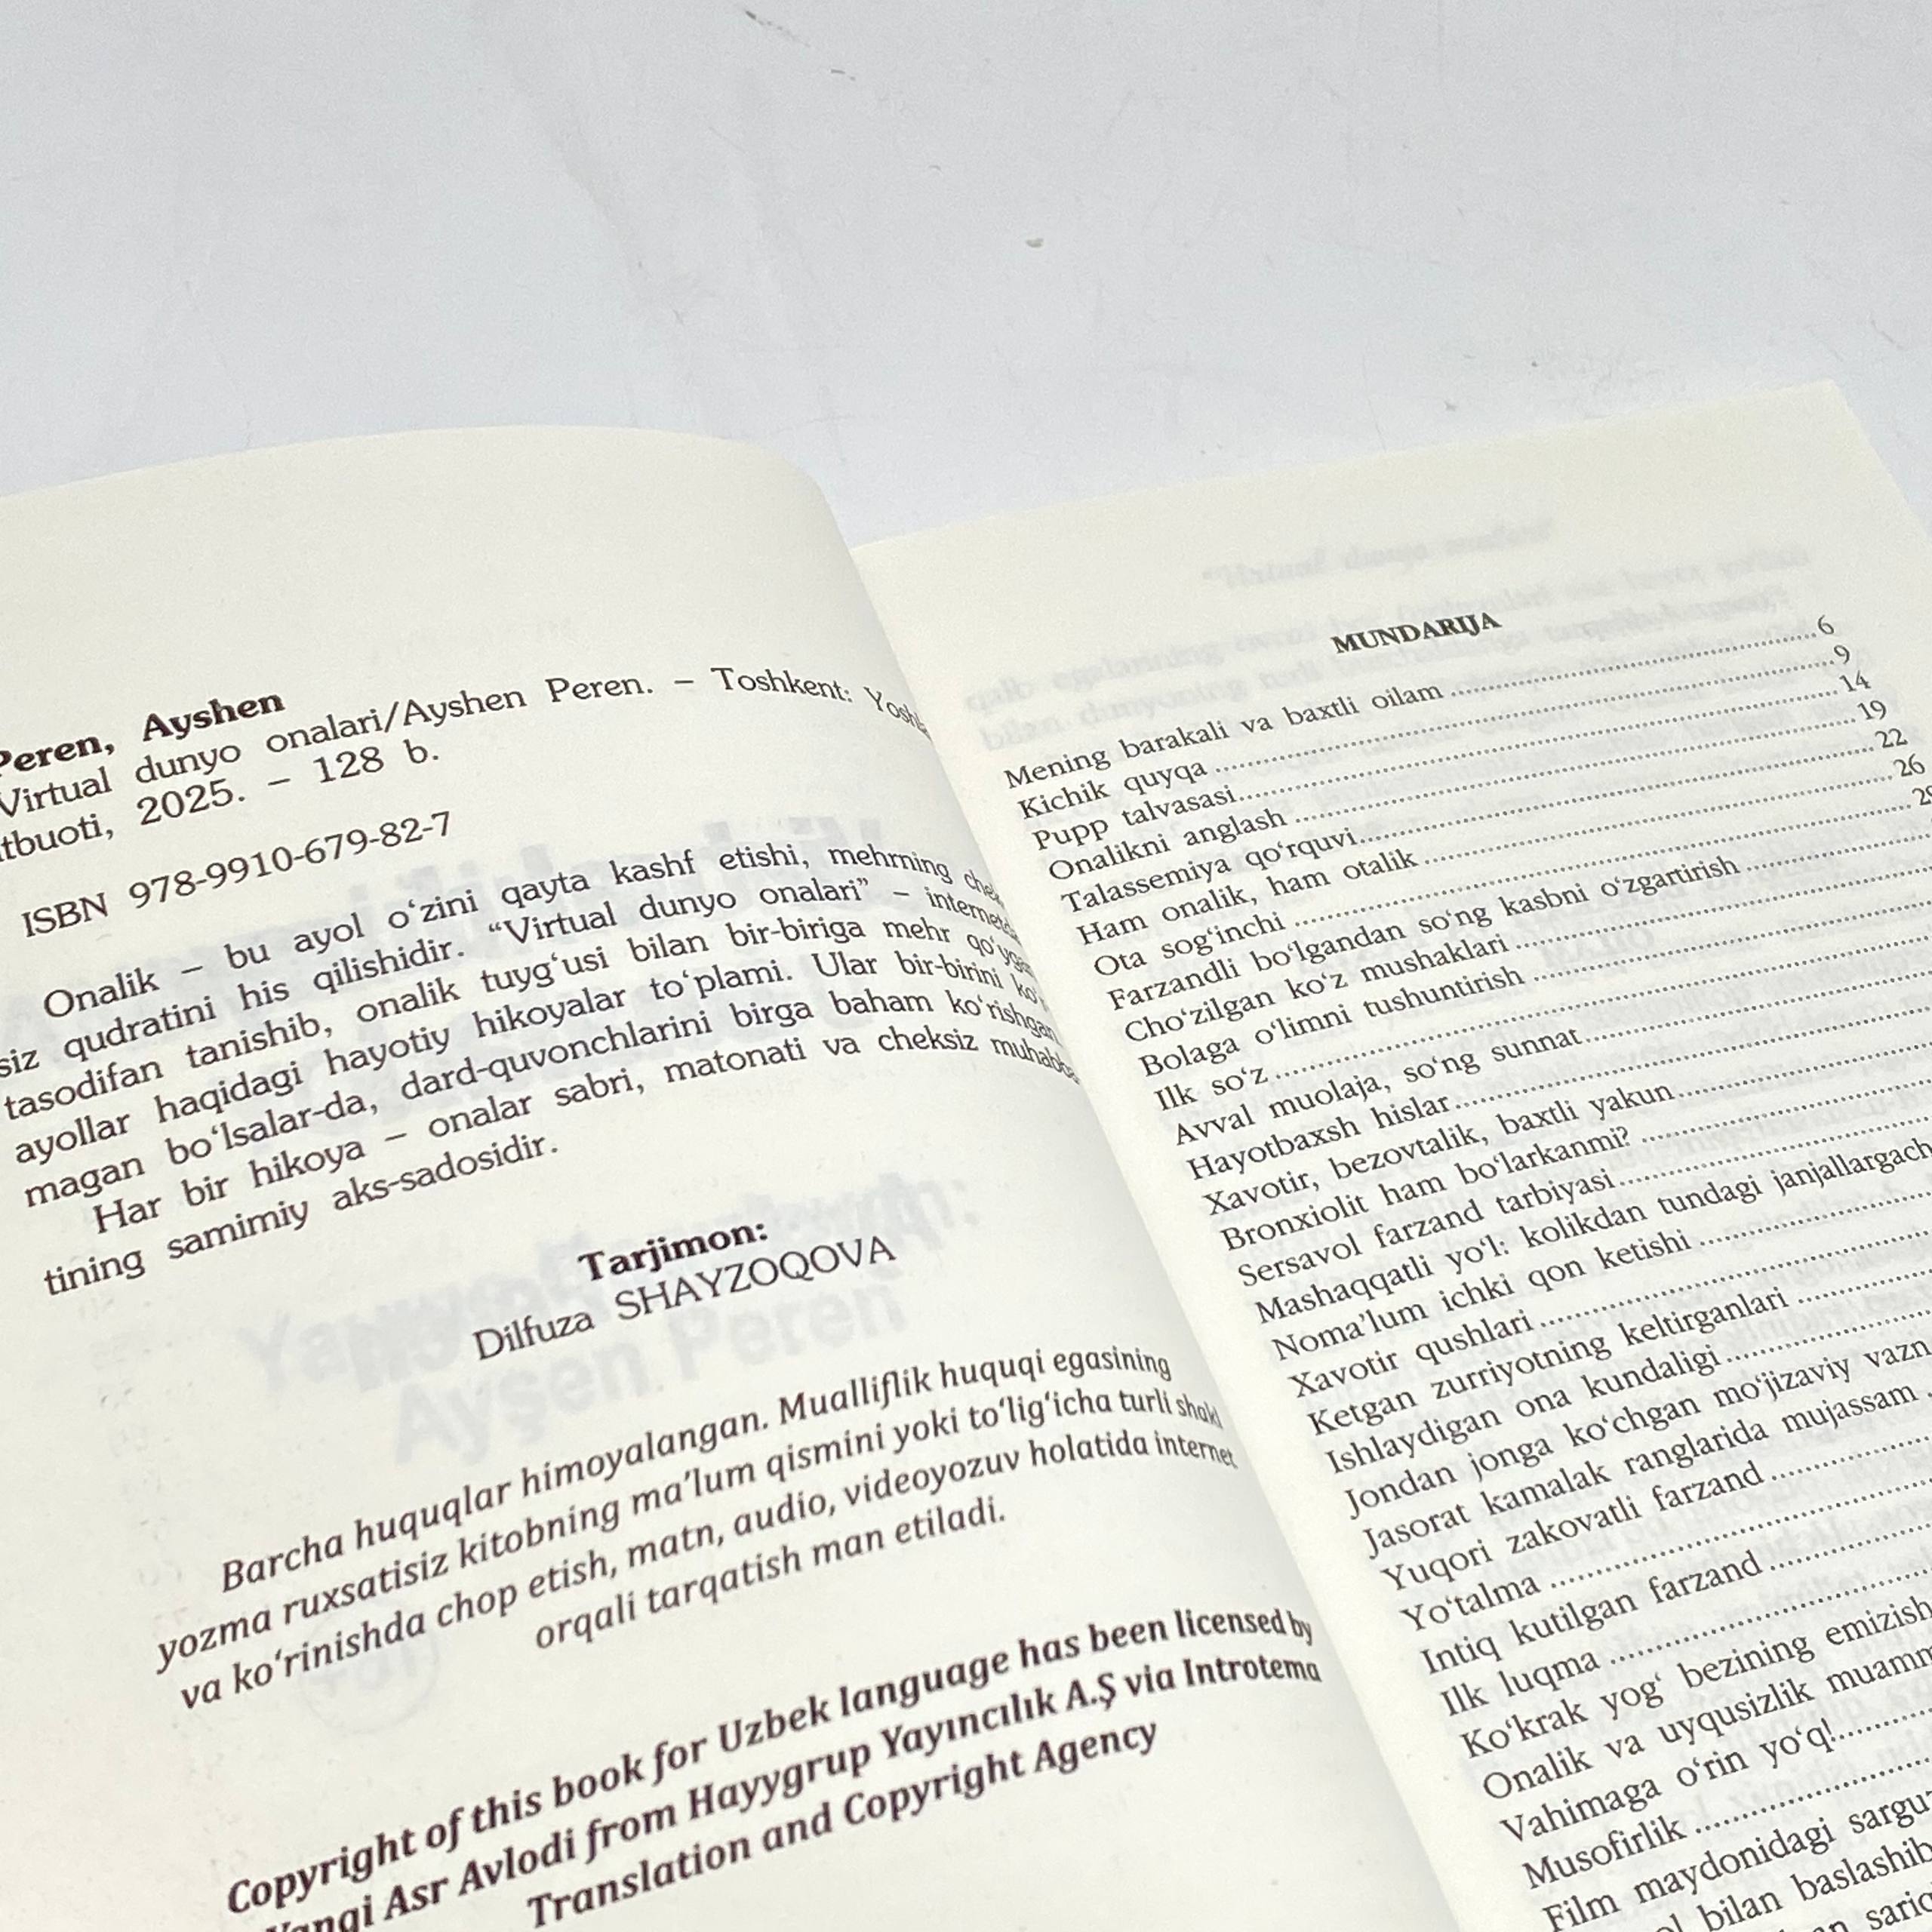 Peren, Ayshen
Virtual dunyo onalari/Ayshen Peren. – Toshkent:
2025. – 128 b.
ISBN 978-9910-679-82-7
Onalik – bu ayol o‘zini qayta kashf etishi, mehrning
siz qudratini his qilishidir. “Virtual dunyo onalari” –
tasodifan tanishib, onalik tuyg‘usi bilan bir-biriga mehr
ayollar haqidagi hayotiy hikoyalar to‘plami. Ular bir-birini
magan bo‘lsalar-da, dard-quvonchlarini birga baham ko‘rishgan
Har bir hikoya – onalar sabri, matonati va cheksiz
tining samimiy aks-sadosidir.
Tarjimon:
Dilfuza SHAYZOQOVA
Barcha huquqlar himoyalangan. Mualliflik huquqi egasining
yozma ruxsatisiz kitobning ma’lum qismini yoki to‘lig‘icha turli shakl
va ko‘rinishda chop etish, matn, audio, videoyozuv holatida internet
orqali tarqatish man etiladi.
Copyright of this book for Uzbek language has been licensed by
Asr Avlodi from Hayygrup Yayıncılık A.Ş via Introtema
Translation and Copyright Agency
MUNDARIJA
Mening barakali va baxtli oilam ........ 6
Kichik quyqa ........ 9
Pupp talvasasi ........ 14
Onalikni anglash ........ 19
Talassemiya qo‘rquvi ........ 22
Ham onalik, ham otalik ........ 26
Ota sog‘inchi ........
Farzandli bo‘lgandan so‘ng kasbni o‘zgartirish ........
Cho‘zilgan ko‘z mushaklari ........
Bolaga o‘limni tushuntirish ........
Ilk so‘z ........
Avval muolaja, so‘ng sunnat ........
Hayotbaxsh hislar ........
Xavotir, bezovtalik, baxtli yakun ........
Bronxiolit ham bo‘larkanmi? ........
Sersavol farzand tarbiyasi ........
Mashaqqatli yo‘l: kolikdan tundagi
Noma’lum ichki qon ketishi ........
Xavotir qushlari ........
Ketgan zurriyotning keltirganlari ........
Ishlaydigan ona kundaligi ........
Jondan jonga ko‘chgan mo‘jizaviy vazn
Jasorat kamalak ranglarida mujassam
Yuqori zakovatli farzand ........
Yo‘talma ........
Intiq kutilgan farzand ........
Ilk luqma ........
Ko‘krak yog‘ bezining emizish
Onalik va uyqusizlik
Vahimaga o‘rin yo‘q! ........
Musofirlik ........
Film maydonidagi
bilan